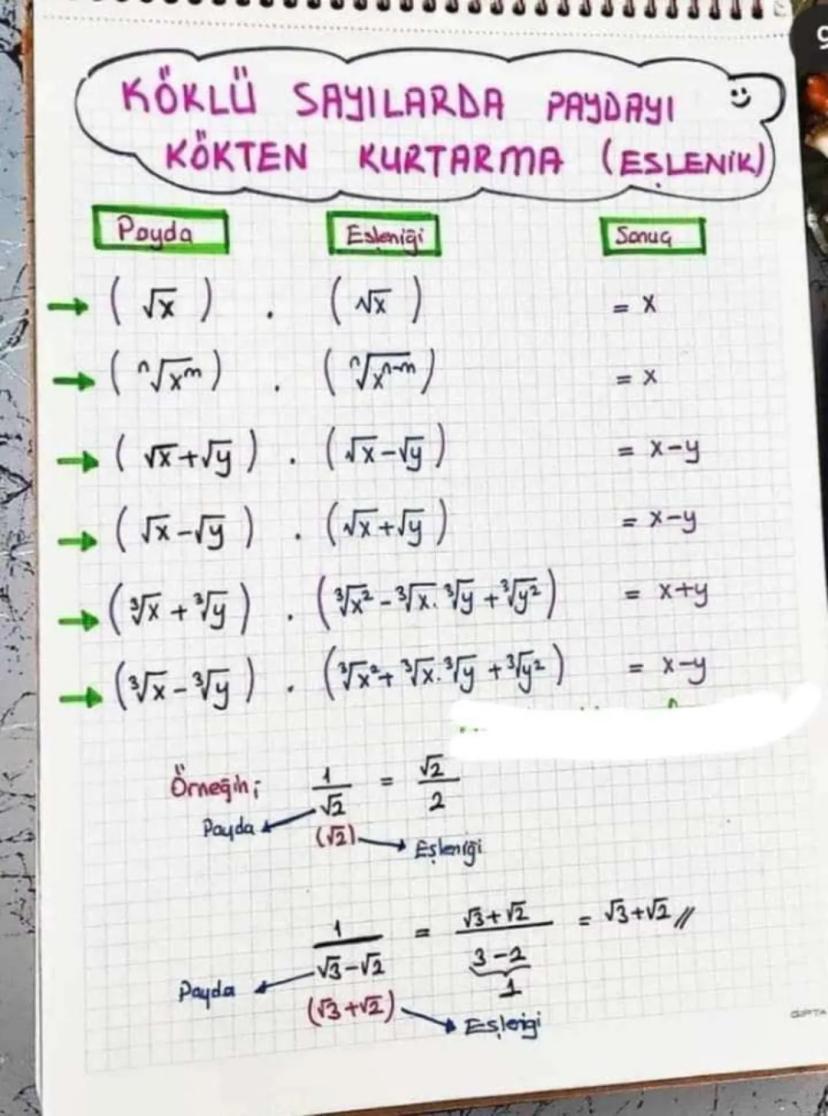 KÖKLÜ SAYILARDA PAYDAYI
KÖKTEN KURTARMA (EŞLENİK)
Payda Eşleniği Sonuç
→ (√x) . (√x) = x
→ (ⁿ√xᵐ) . (ⁿ√xⁿ⁻ᵐ) = x
→ (√x+√y) . (√x-√y) = x-y
→ (√x-√y) . (√x+√y) = x-y
→ (³√x + ³√y) . (³√x² - ³√x . ³√y + ³√y²) = x+y
→ (³√x - ³√y) . (³√x² + ³√x . ³√y + ³√y²) = x-y
Örneğin; 1/√2 = √2/2
Payda (√2) Eşleniği
1/(√3-√2) = (√3+√2)/(3-2) = √3+√2 //
1
Payda (√3+√2) Eşleniği
GIPTA